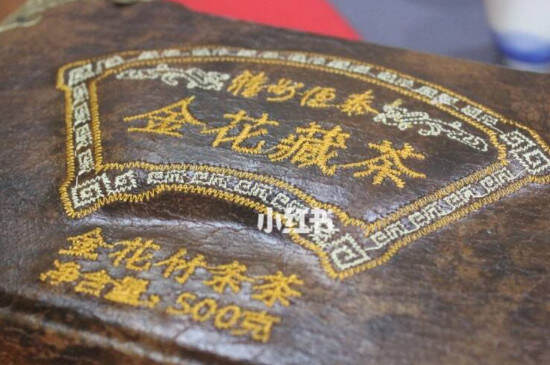 雅州恒泰
金花藏茶
小红书
金花竹条茶
净含量: 500克